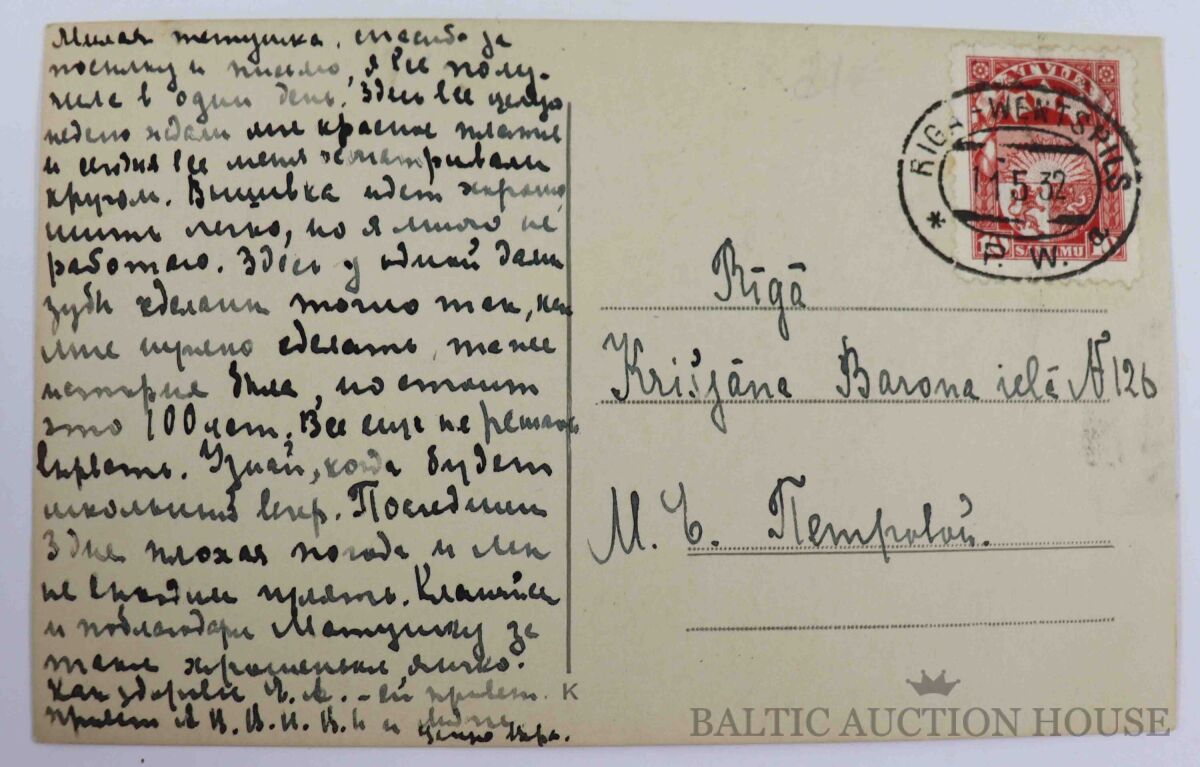 Милая тетушка, спасибо за
посылку и письмо, я все полу-
чила в один день. Здесь все целую
неделю ждали мое красное платье
и сегодня все меня осматривали
кругом. Вышивка идет хорошо,
шить легко, но я много не
работаю. Здесь у одной дамы
зубы сделаны точно так, как
мне нужно сделать, та же
история была, но стоит
это 100 лат. Все еще не решаюсь
вырвать. Узнай, когда будет
школьный вечер. Последние
3 дня плохая погода и мы
не выходим гулять. Кланяйся
и поблагодари Матушку за
такое хорошенькое яичко.
Как здоровье - ей привет.
Привет и
целую Вера.
K
LATVIJA
RIGA-WENTSPILS
11 5 32
P. W. 8
SANTIMU
Rīgā
Krišjāna Barona ielā № 126
М. Е. Петровой.
BALTIC AUCTION HOUSE